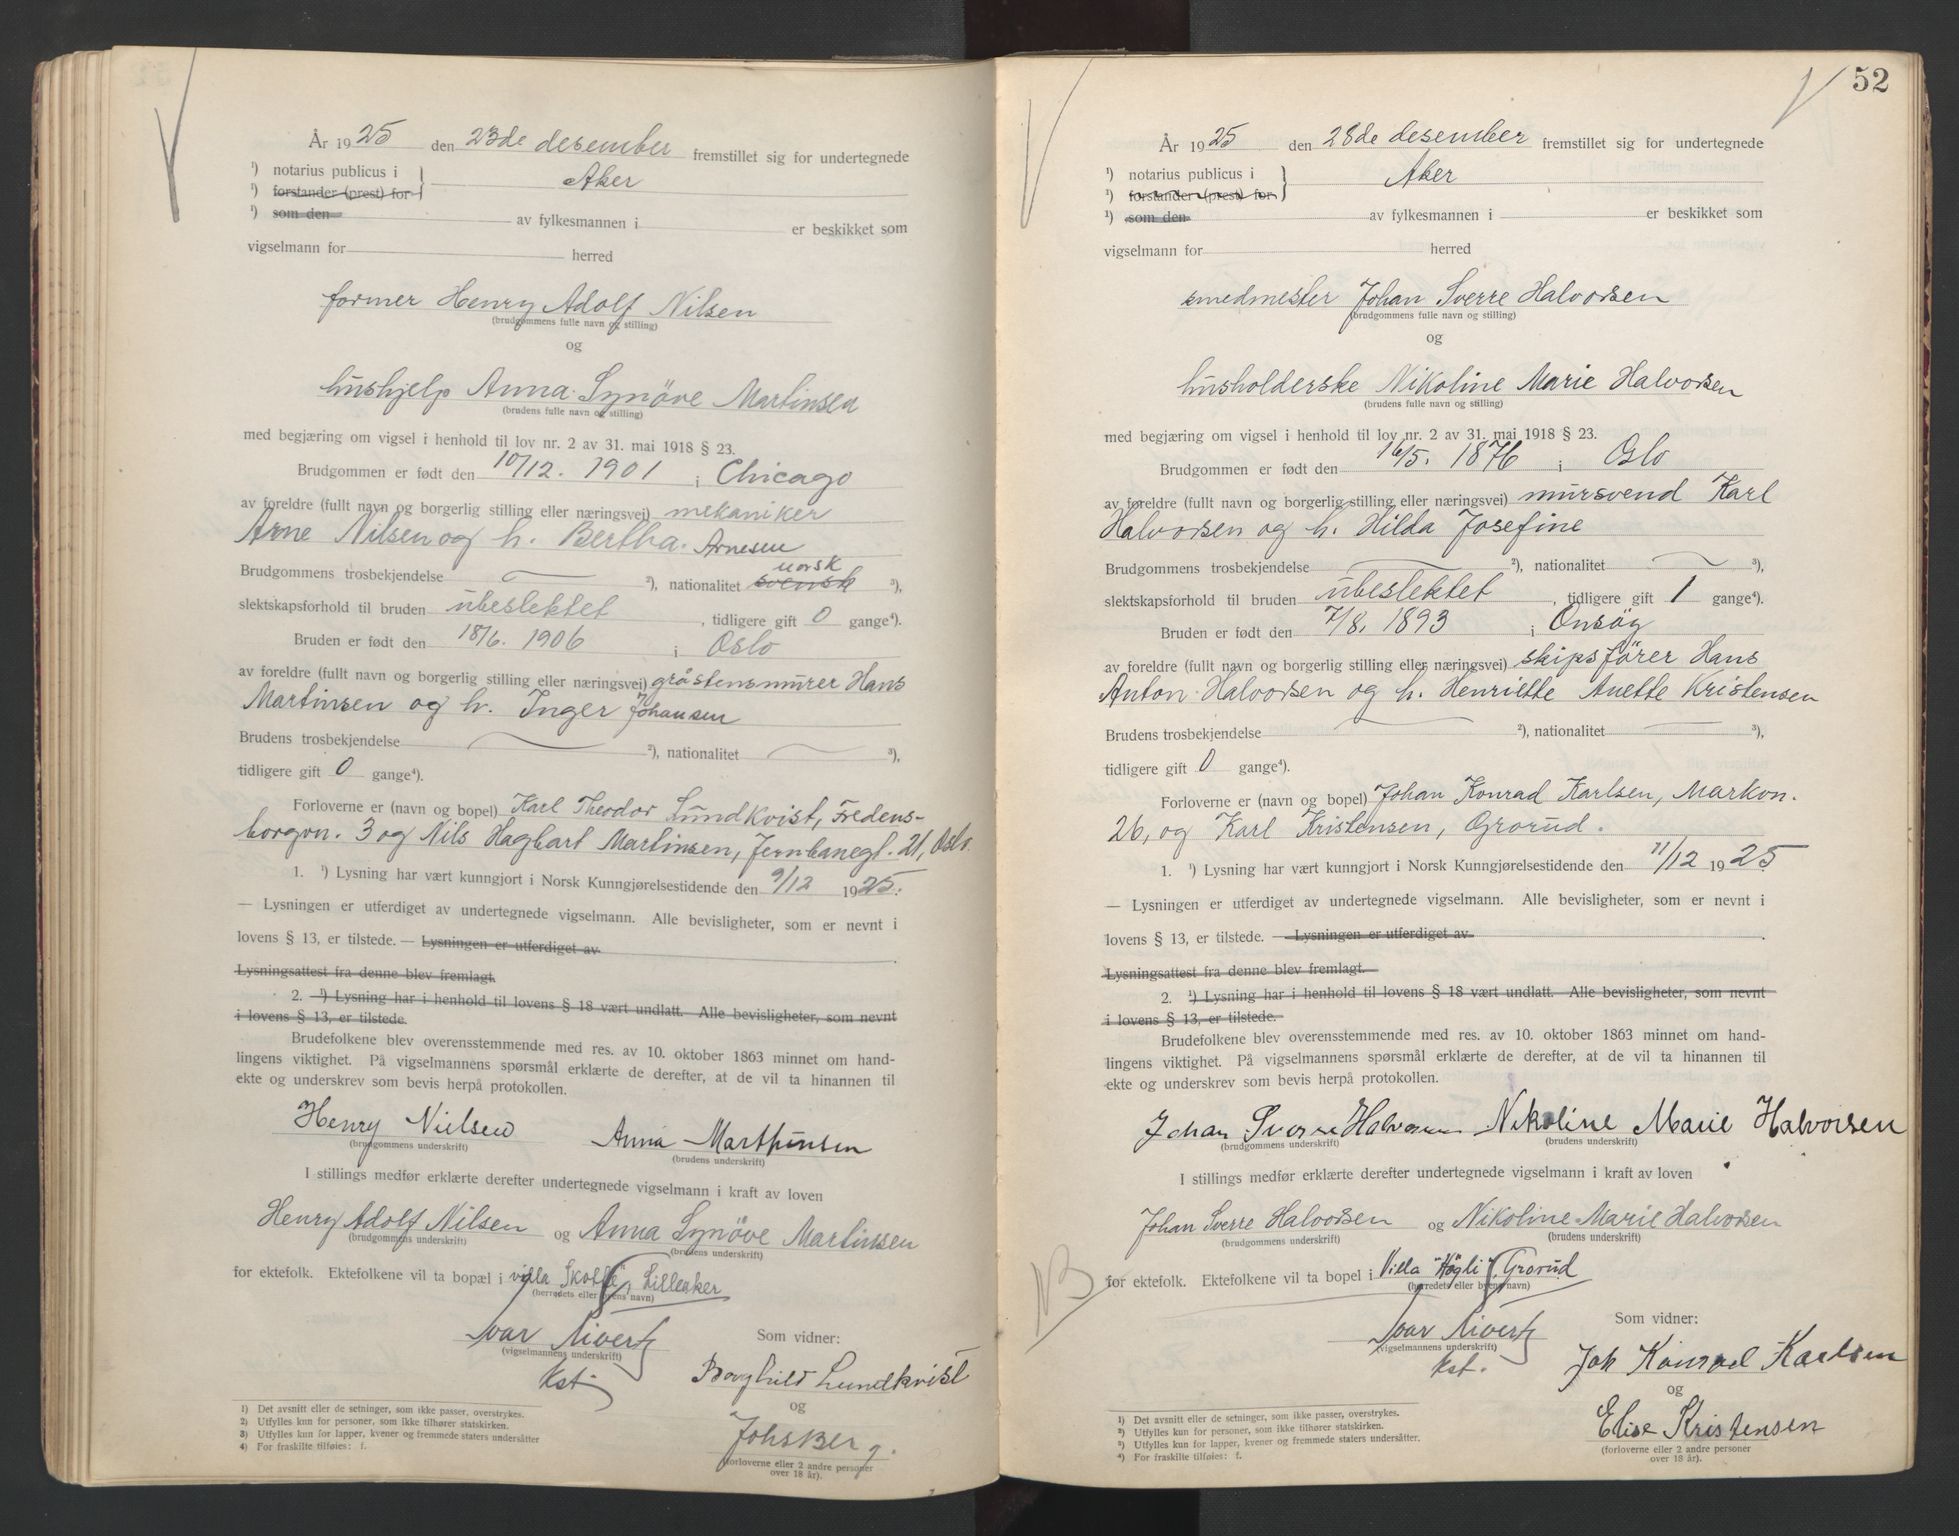 År 1925 den 23de desember fremstillet sig for undertegnede
¹) notarius publicus i
¹) forstander (prest) for } Aker
¹) som den av fylkesmannen i er beskikket som
vigselmann for herred
former Henry Adolf Nilsen
(brudgommens fulle navn og stilling)
og
hushjelp Anna Synöve Martinsen
(brudens fulle navn og stilling)
med begjæring om vigsel i henhold til lov nr. 2 av 31. mai 1918 § 23.
Brudgommen er født den 10/12. 1901 i Chicago
av foreldre (fullt navn og borgerlig stilling eller næringsvei) mekaniker
Arne Nilsen og h. Bertha Arnesen
norsk
Brudgommens trosbekjendelse ²), nationalitet svensk ³),
slektskapsforhold til bruden ubeslektet, tidligere gift 0 gange⁴).
Bruden er født den 18/6. 1906 i Oslo
av foreldre (fullt navn og borgerlig stilling eller næringsvei) gråstensmurer Hans
Martinsen og h. Inger Johansen
Brudens trosbekjendelse ²), nationalitet ³),
tidligere gift 0 gange⁴).
Forloverne er (navn og bopel) Karl Theodor Lundkvist, Fredens-
borgvn. 3 og Nils Hagbart Martinsen, Jernbanegt. 21, Oslo.
1. ¹) Lysning har vært kunngjort i Norsk Kunngjørelsestidende den 9/12 1925.
— Lysningen er utferdiget av undertegnede vigselmann. Alle bevisligheter, som er nevnt i
lovens § 13, er tilstede. — Lysningen er utferdiget av
Lysningsattest fra denne blev fremlagt.
2. ¹) Lysning har i henhold til lovens § 18 vært undlatt. Alle bevisligheter, som nevnt
i lovens § 13, er tilstede.
Brudefolkene blev overensstemmende med res. av 10. oktober 1863 minnet om hand-
lingens viktighet. På vigselmannens spørsmål erklærte de derefter, at de vil ta hinannen til
ekte og underskrev som bevis herpå protokollen.
Henry Nielsen Anna Marthinsen
(brudgommens underskrift) (brudens underskrift)
I stillings medfør erklærte derefter undertegnede vigselmann i kraft av loven
Henry Adolf Nilsen og Anna Synöve Martinsen
(brudgommens underskrift) (brudens underskrift)
for ektefolk. Ektefolkene vil ta bopæl i villa Lilleaker
(herredets eller byens navn)
Ivar Sivertz
(vigselmannens underskrift)
Kst.
Som vidner:
Borghild Lundkvist
og
Johs Berg.
(forloverne eller 2 andre personer
over 18 år).
1) Det avsnitt eller de setninger, som ikke passer, overstrykes.
2) Utfylles kun for personer, som ikke tilhører statskirken.
3) Utfylles kun for lapper, kvener og fremmede staters undersåtter
4) For fraskilte tilføies: f.
52
År 1925 den 28de desember fremstillet sig for undertegnede
¹) notarius publicus i
¹) forstander (prest) for } Aker
¹) som den av fylkesmannen i er beskikket som
vigselmann for herred
smedmester Johan Sverre Halvorsen
(brudgommens fulle navn og stilling)
og
husholderske Nikoline Marie Halvorsen
(brudens fulle navn og stilling)
med begjæring om vigsel i henhold til lov nr. 2 av 31. mai 1918 § 23.
Brudgommen er født den 16/5. 1876 i Oslo
av foreldre (fullt navn og borgerlig stilling eller næringsvei) mursvend Karl
Halvorsen og h. Hilda Josefine
Brudgommens trosbekjendelse ²), nationalitet ³),
slektskapsforhold til bruden ubeslektet, tidligere gift 1 gange⁴).
Bruden er født den 7/8. 1893 i Onsöy
av foreldre (fullt navn og borgerlig stilling eller næringsvei) skipsförer Hans
Anton Halvorsen og h. Henriette Anette Kristensen
Brudens trosbekjendelse ²), nationalitet ³),
tidligere gift 0 gange⁴).
Forloverne er (navn og bopel) Johan Konrad Karlsen, Markvn.
26, og Karl Kristensen, Grorud.
1. ¹) Lysning har vært kunngjort i Norsk Kunngjørelsestidende den 11/12 1925
— Lysningen er utferdiget av undertegnede vigselmann. Alle bevisligheter, som er nevnt i
lovens § 13, er tilstede. — Lysningen er utferdiget av
Lysningsattest fra denne blev fremlagt.
2. ¹) Lysning har i henhold til lovens § 18 vært undlatt. Alle bevisligheter, som nevnt
i lovens § 13, er tilstede.
Brudefolkene blev overensstemmende med res. av 10. oktober 1863 minnet om hand-
lingens viktighet. På vigselmannens spørsmål erklærte de derefter, at de vil ta hinannen til
ekte og underskrev som bevis herpå protokollen.
Johan Sverre Halvorsen Nikoline Marie Halvorsen
(brudgommens underskrift) (brudens underskrift)
I stillings medfør erklærte derefter undertegnede vigselmann i kraft av loven
Johan Sverre Halvorsen og Nikoline Marie Halvorsen
(brudgommens underskrift) (brudens underskrift)
for ektefolk. Ektefolkene vil ta bopel i Villa "Högli", Grorud
(herredets eller byens navn)
Ivar Sivertz
(vigselmannens underskrift)
kst.
Som vidner:
Joh Konrad Karlsen
og
Elise Kristensen
(forloverne eller 2 andre personer
over 18 år).
¹) Det avsnitt eller de setninger, som ikke passer, overstrykes.
²) Utfylles kun for personer, som ikke tilhører statskirken.
³) Utfylles kun for lapper, kvener og fremmede staters undersåtter.
⁴) For fraskilte tilføies: f.